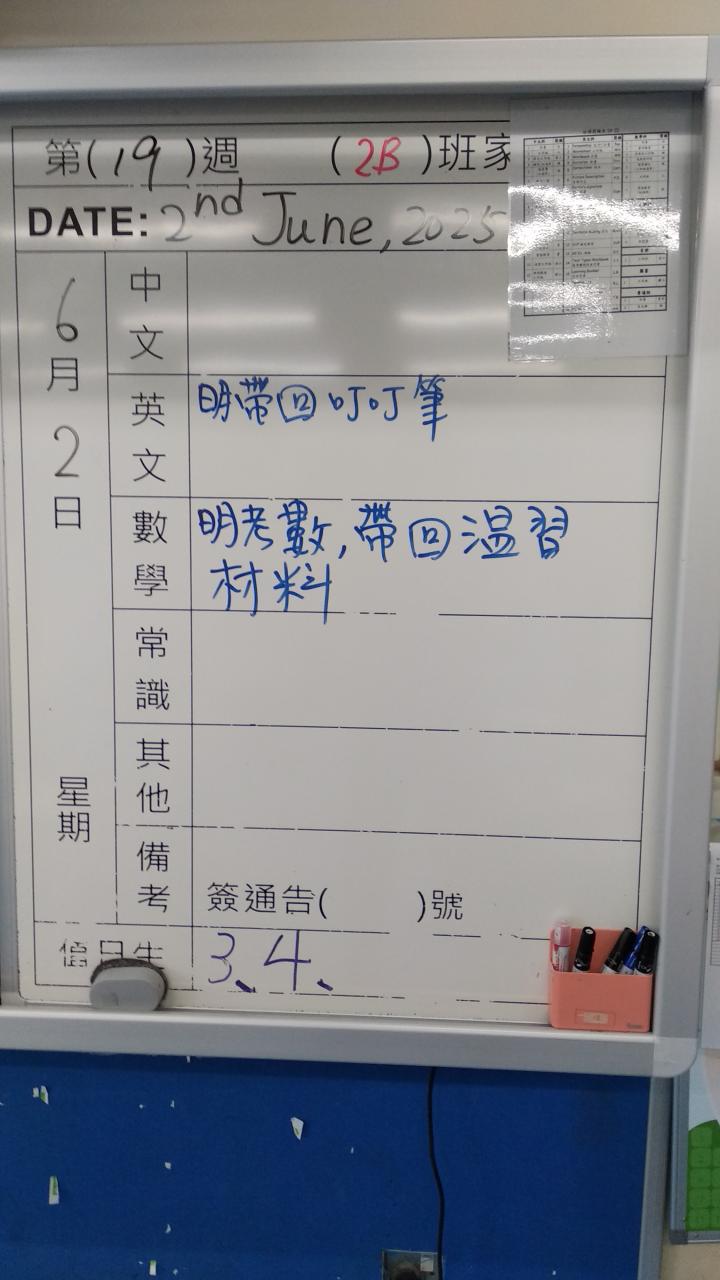 第(19)週 (2B)班家
DATE: 2nd June, 2025
6月2日
星期
中文
英文 明帶回叮叮筆
數學 明考數,帶回温習
材料
常識
其他
備考 簽通告( )號
值日生 3、4、